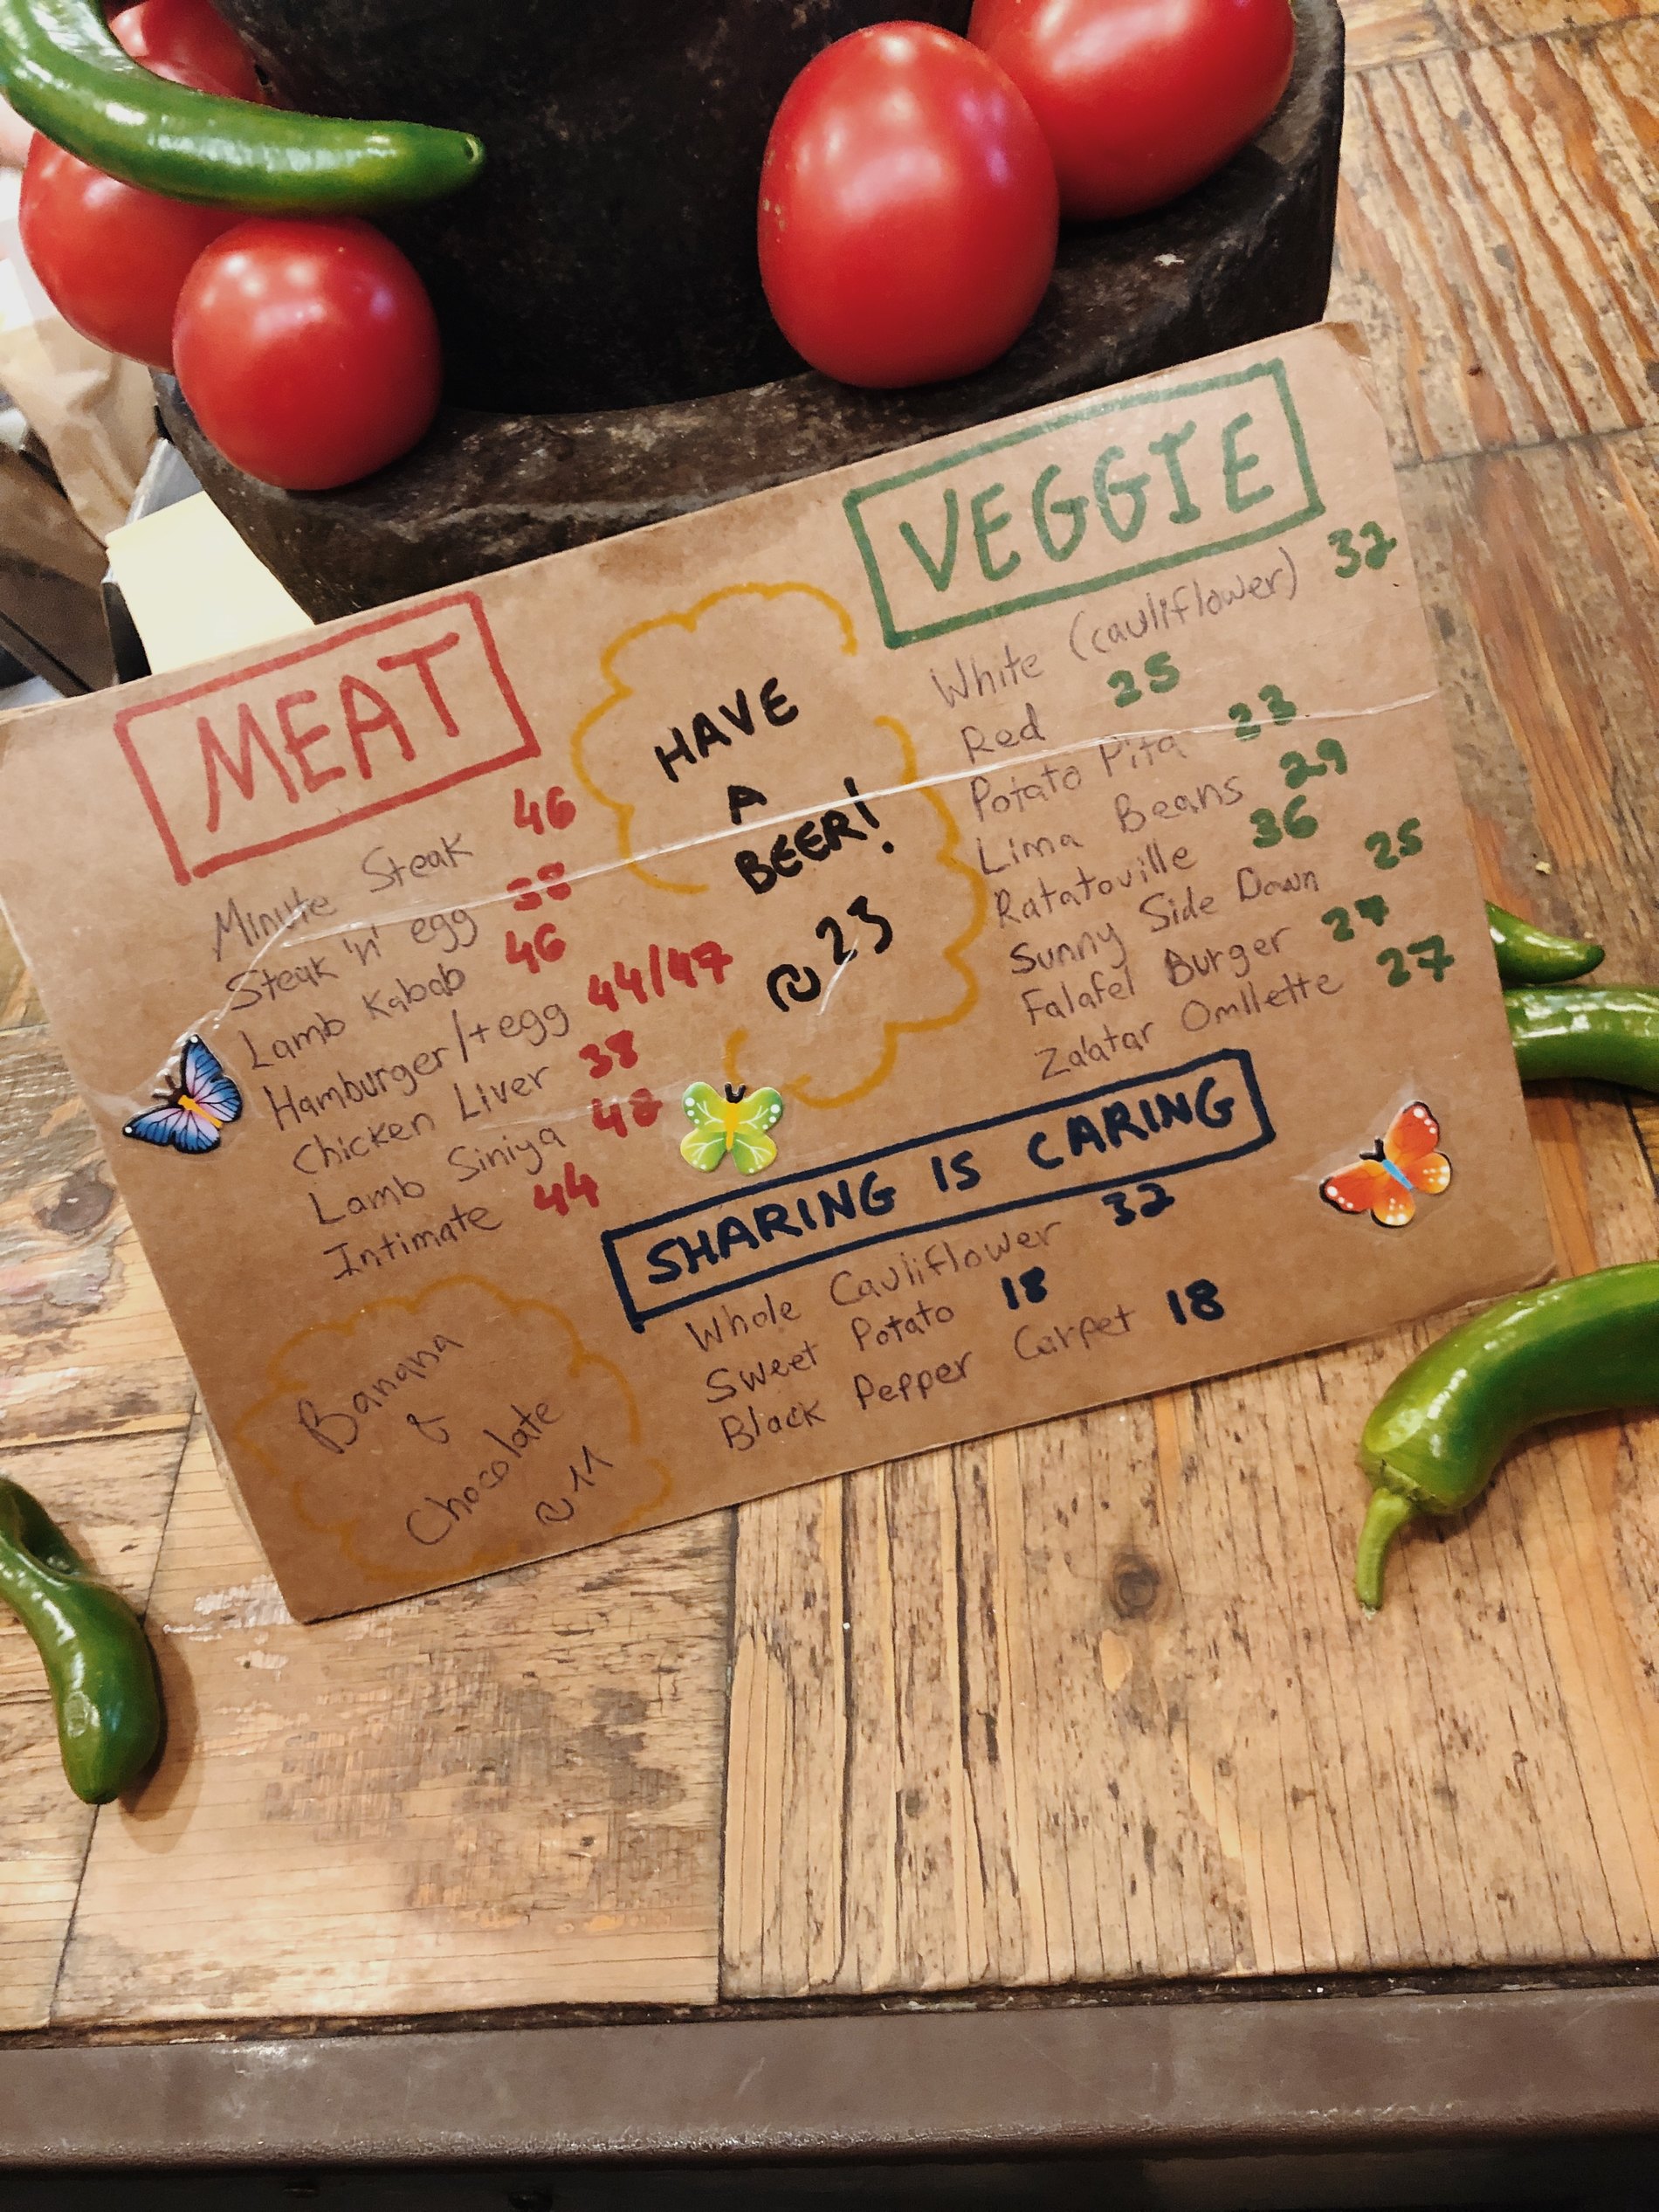 MEAT
Minute Steak 46
Steak 'n' egg 38
Lamb Kabab 46
Hamburger/+egg 44/47
Chicken Liver 38
Lamb Siniya 48
Intimate 44
HAVE
A
BEER!
₪ 23
VEGGIE
White (cauliflower) 32
Red 25
Potato Pita 23
Lima Beans 29
Ratatouille 36
Sunny Side Down 25
Falafel Burger 27
Za'atar Omllette 27
SHARING IS CARING
Whole Cauliflower 32
Sweet Potato 18
Black Pepper Carpet 18
Banana
&
Chocolate
₪ 11